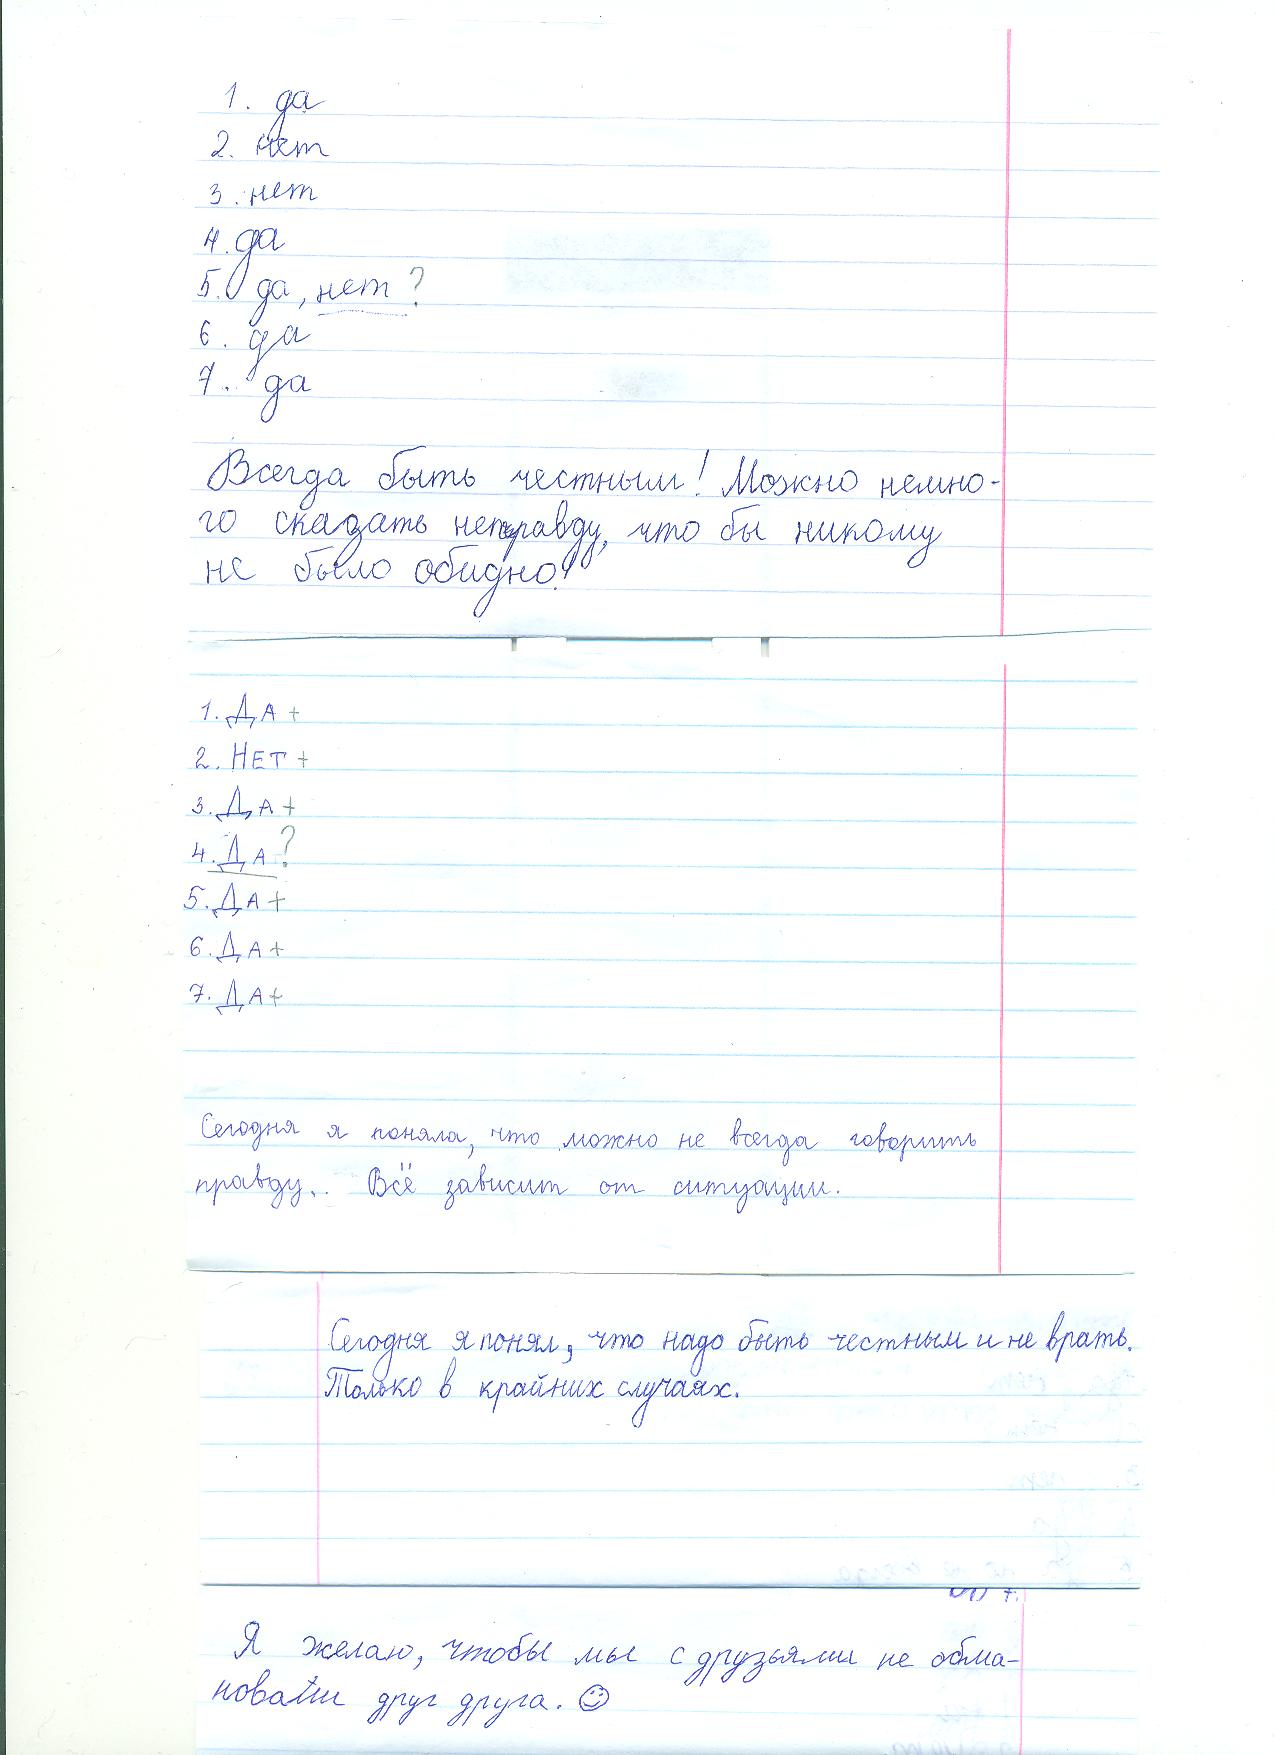 1. да
2. нет
3. нет
4. да
5. да, нет ?
6. да
7. да
Всегда быть честным! Можно немно-
го сказать неправду, что бы никому
не было обидно!
1. ДА +
2. НЕТ +
3. ДА +
4. ДА ?
5. ДА +
6. ДА +
7. ДА +
Сегодня я поняла, что можно не всегда говорить
правду. Всё зависит от ситуации.
Сегодня я понял, что надо быть честным и не врать.
Только в крайних случаях.
Я желаю, чтобы мы с друзьями не обма-
новали друг друга. ☺